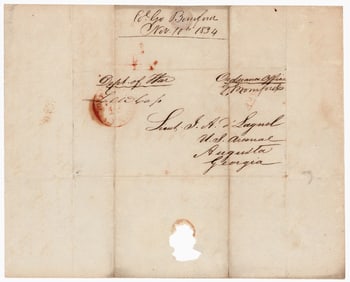 Col Geo Bomford
Nov. 10th 1834
Dept of War
Ordnance Office
G. Bomford
Lieut J. A. D'Lagnel
U.S. Arsenal
Augusta
Georgia